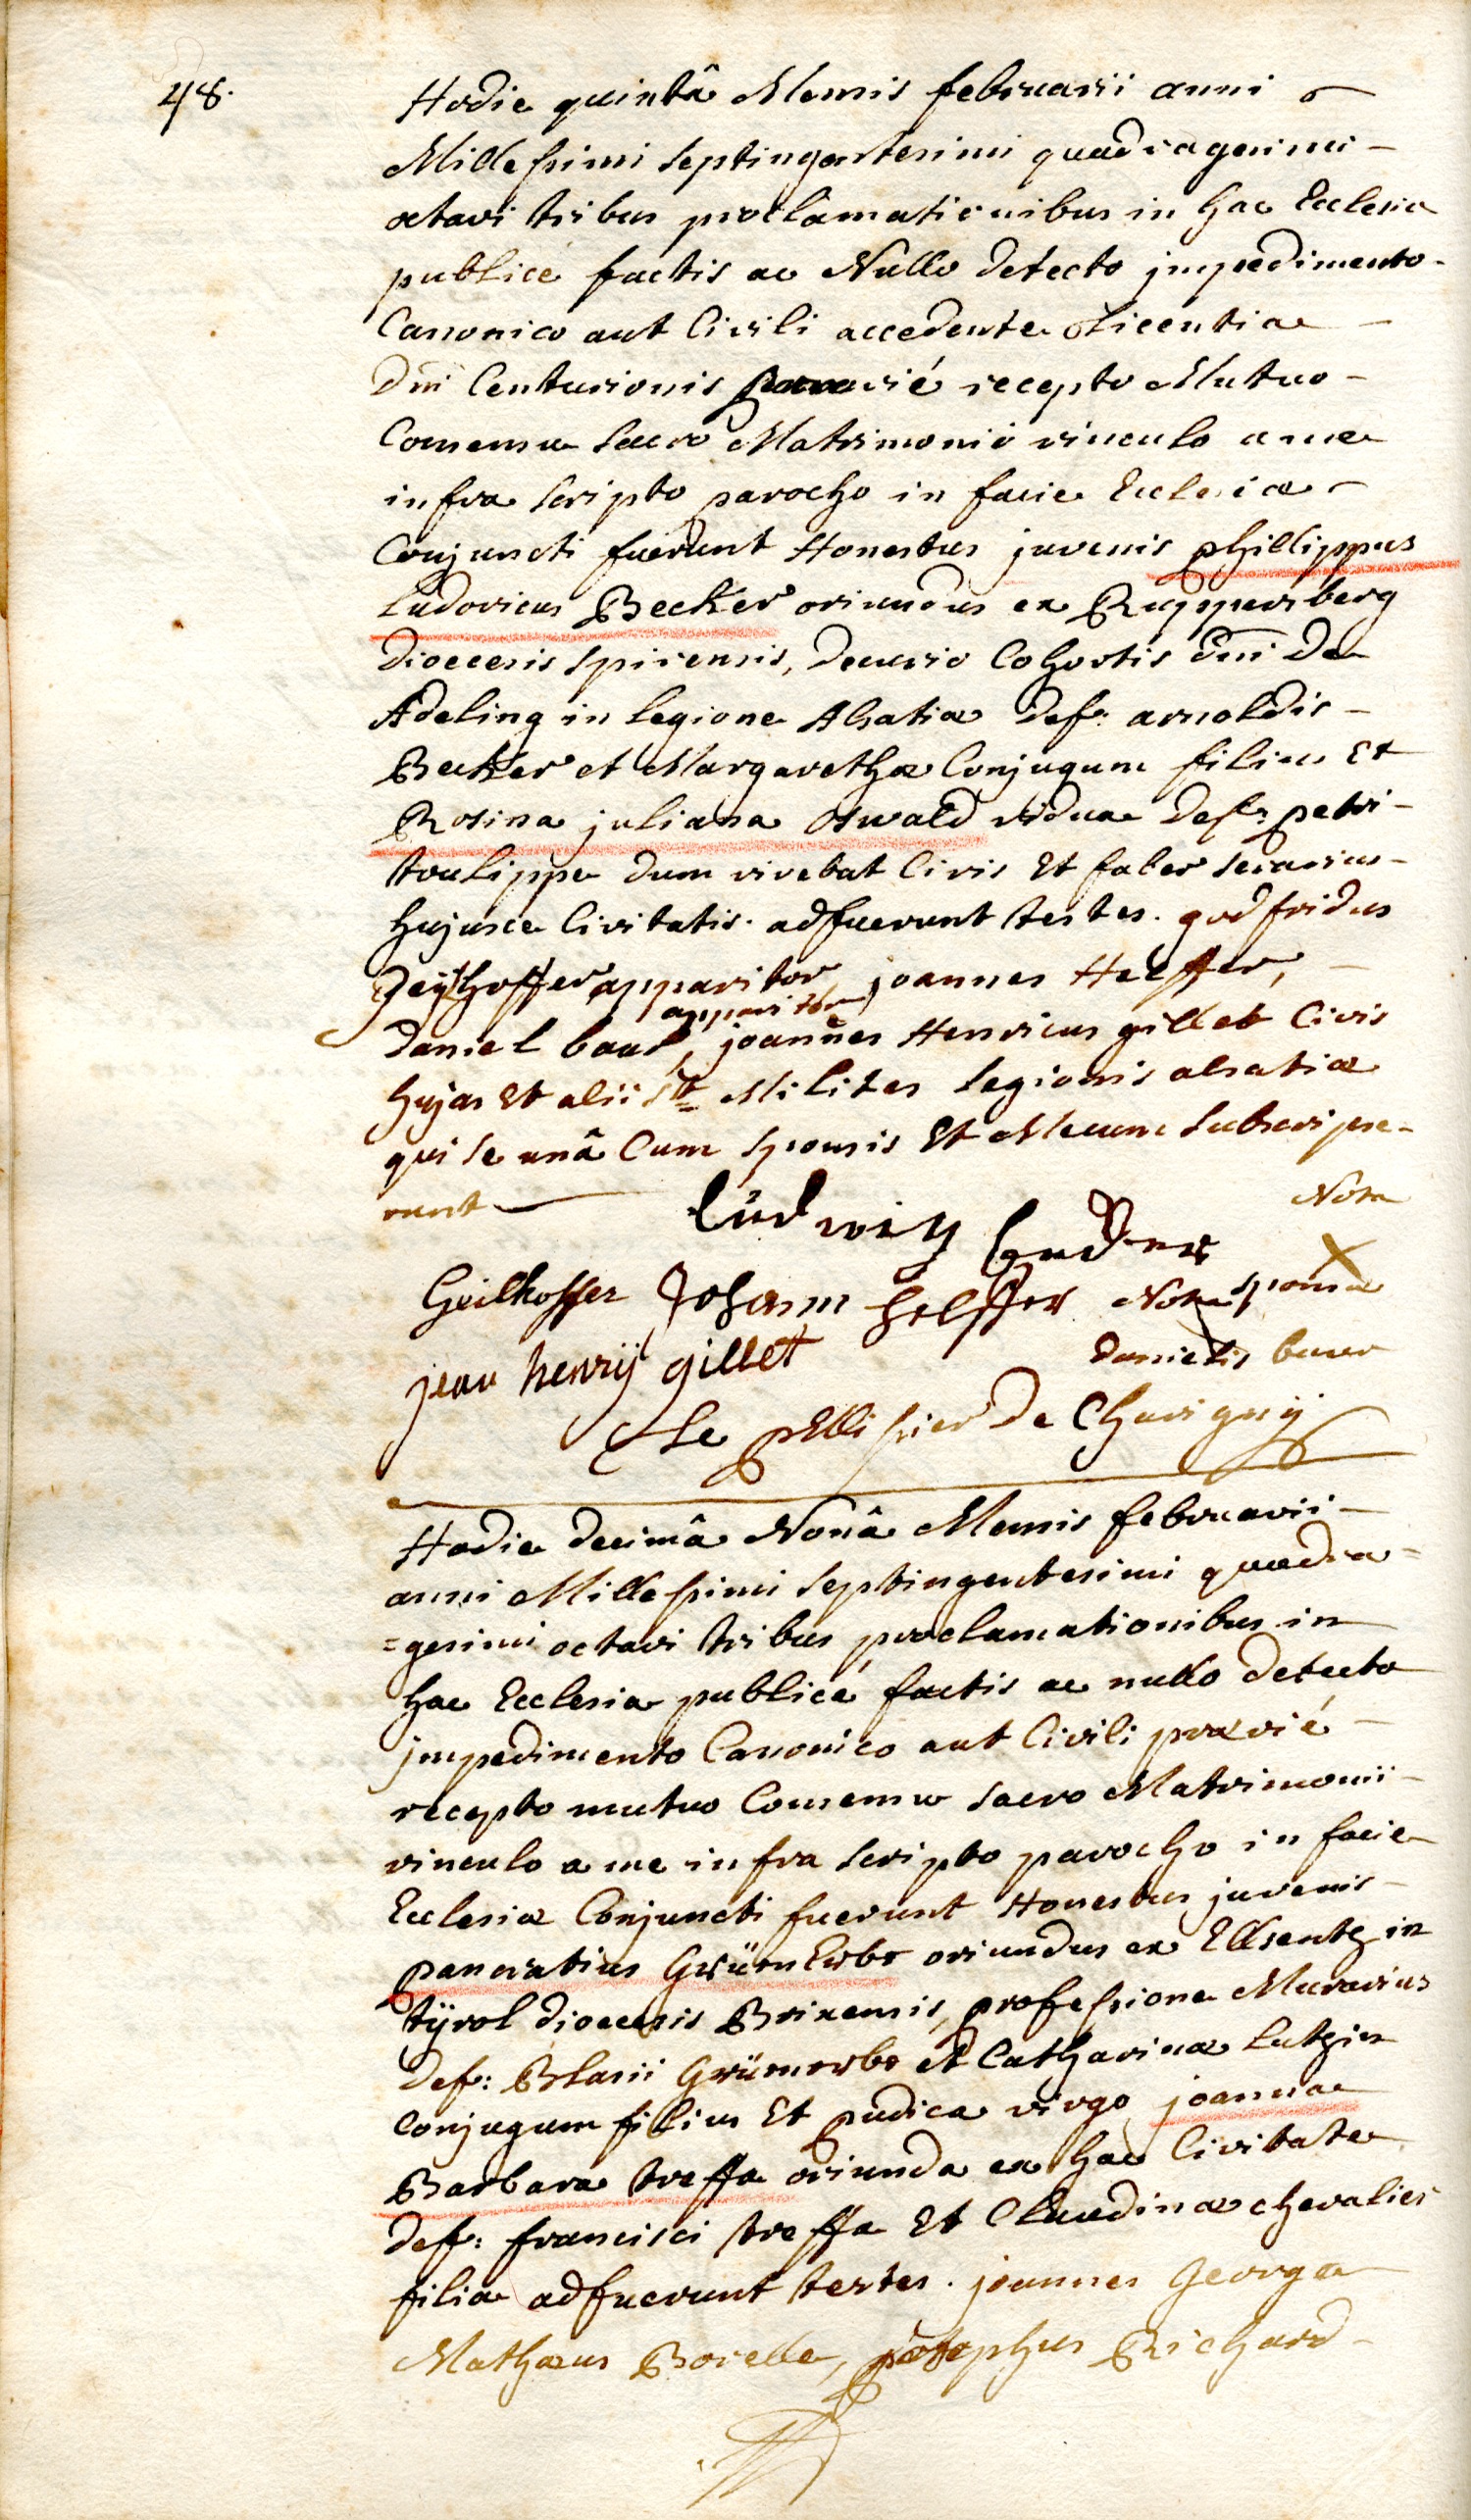 48.
Hodie quintâ Mensis februarii anni
Millessimi septingentesimi quadragesimi -
octavi tribus proclamationibus in hac Ecclesia
publicé factis ac Nullo detecto impedimento -
Canonico aut Civili accedente Licentia -
Dni Centurionis praevié recepto Mutuo -
Consensu sacro Matrimonii vinculo a me
infra scripto parocho in facie Ecclesiae -
Conjuncti fuerunt Honestus juvenis phillippus
Ludovicus Becker oriundus ex Ruppersberg
Dioecesis spirensis, decurio Cohortis dni De
Adeling in legione Alsatiae def: arnoldis -
Becker et Margarethae Conjugum filius Et
Rosina juliana Oswald vidua def: petri -
troulippe dum vivebat Civis Et faber serarius -
hujusce Civitatis. adfuerunt testes. godfridus
Zeylhoffer apparitor, joannes Helffer, -
apparitor
Daniel baur, joannes Henricus gillet Civis
hujas Et alii stt Milites legionis alsatiae
qui se unâ Cum sponsis Et Mecum subscripse -
runt Nota
Lüdwig
Geilhoffer Johann helffer Nota sponsae
jean henrÿ gillet Danielis baur
Le pellissier De Chavignÿ
Hodie decimâ Nonâ Mensis februarii -
anni Millessimi septingentesimi quadra=
=gesimi octavi tribus proclamationibus in
hac Ecclesia publicé factis ac nullo detecto
impedimento Canonico aut Civili praevié -
recepto mutuo Consensu sacro Matrimonii -
vinculo a me infra scripto parocho in facie
Ecclesiae Conjuncti fuerunt Honestus juvenis -
pancratius Grünerbs oriundus ex Ellsentz in
tÿrol dioecesis Brixensis, professione Murarius
def: Blasii Grünerbs et Catharinae Lutzin
Conjugum filius Et pudica virgo joanna
Barbara treffa oriunda ex hac Civitate
def: francisci treffa Et Claudinae chevalier
filia adfuerunt testes. joannes George
Mathaeus Borelle, josephus Richard -